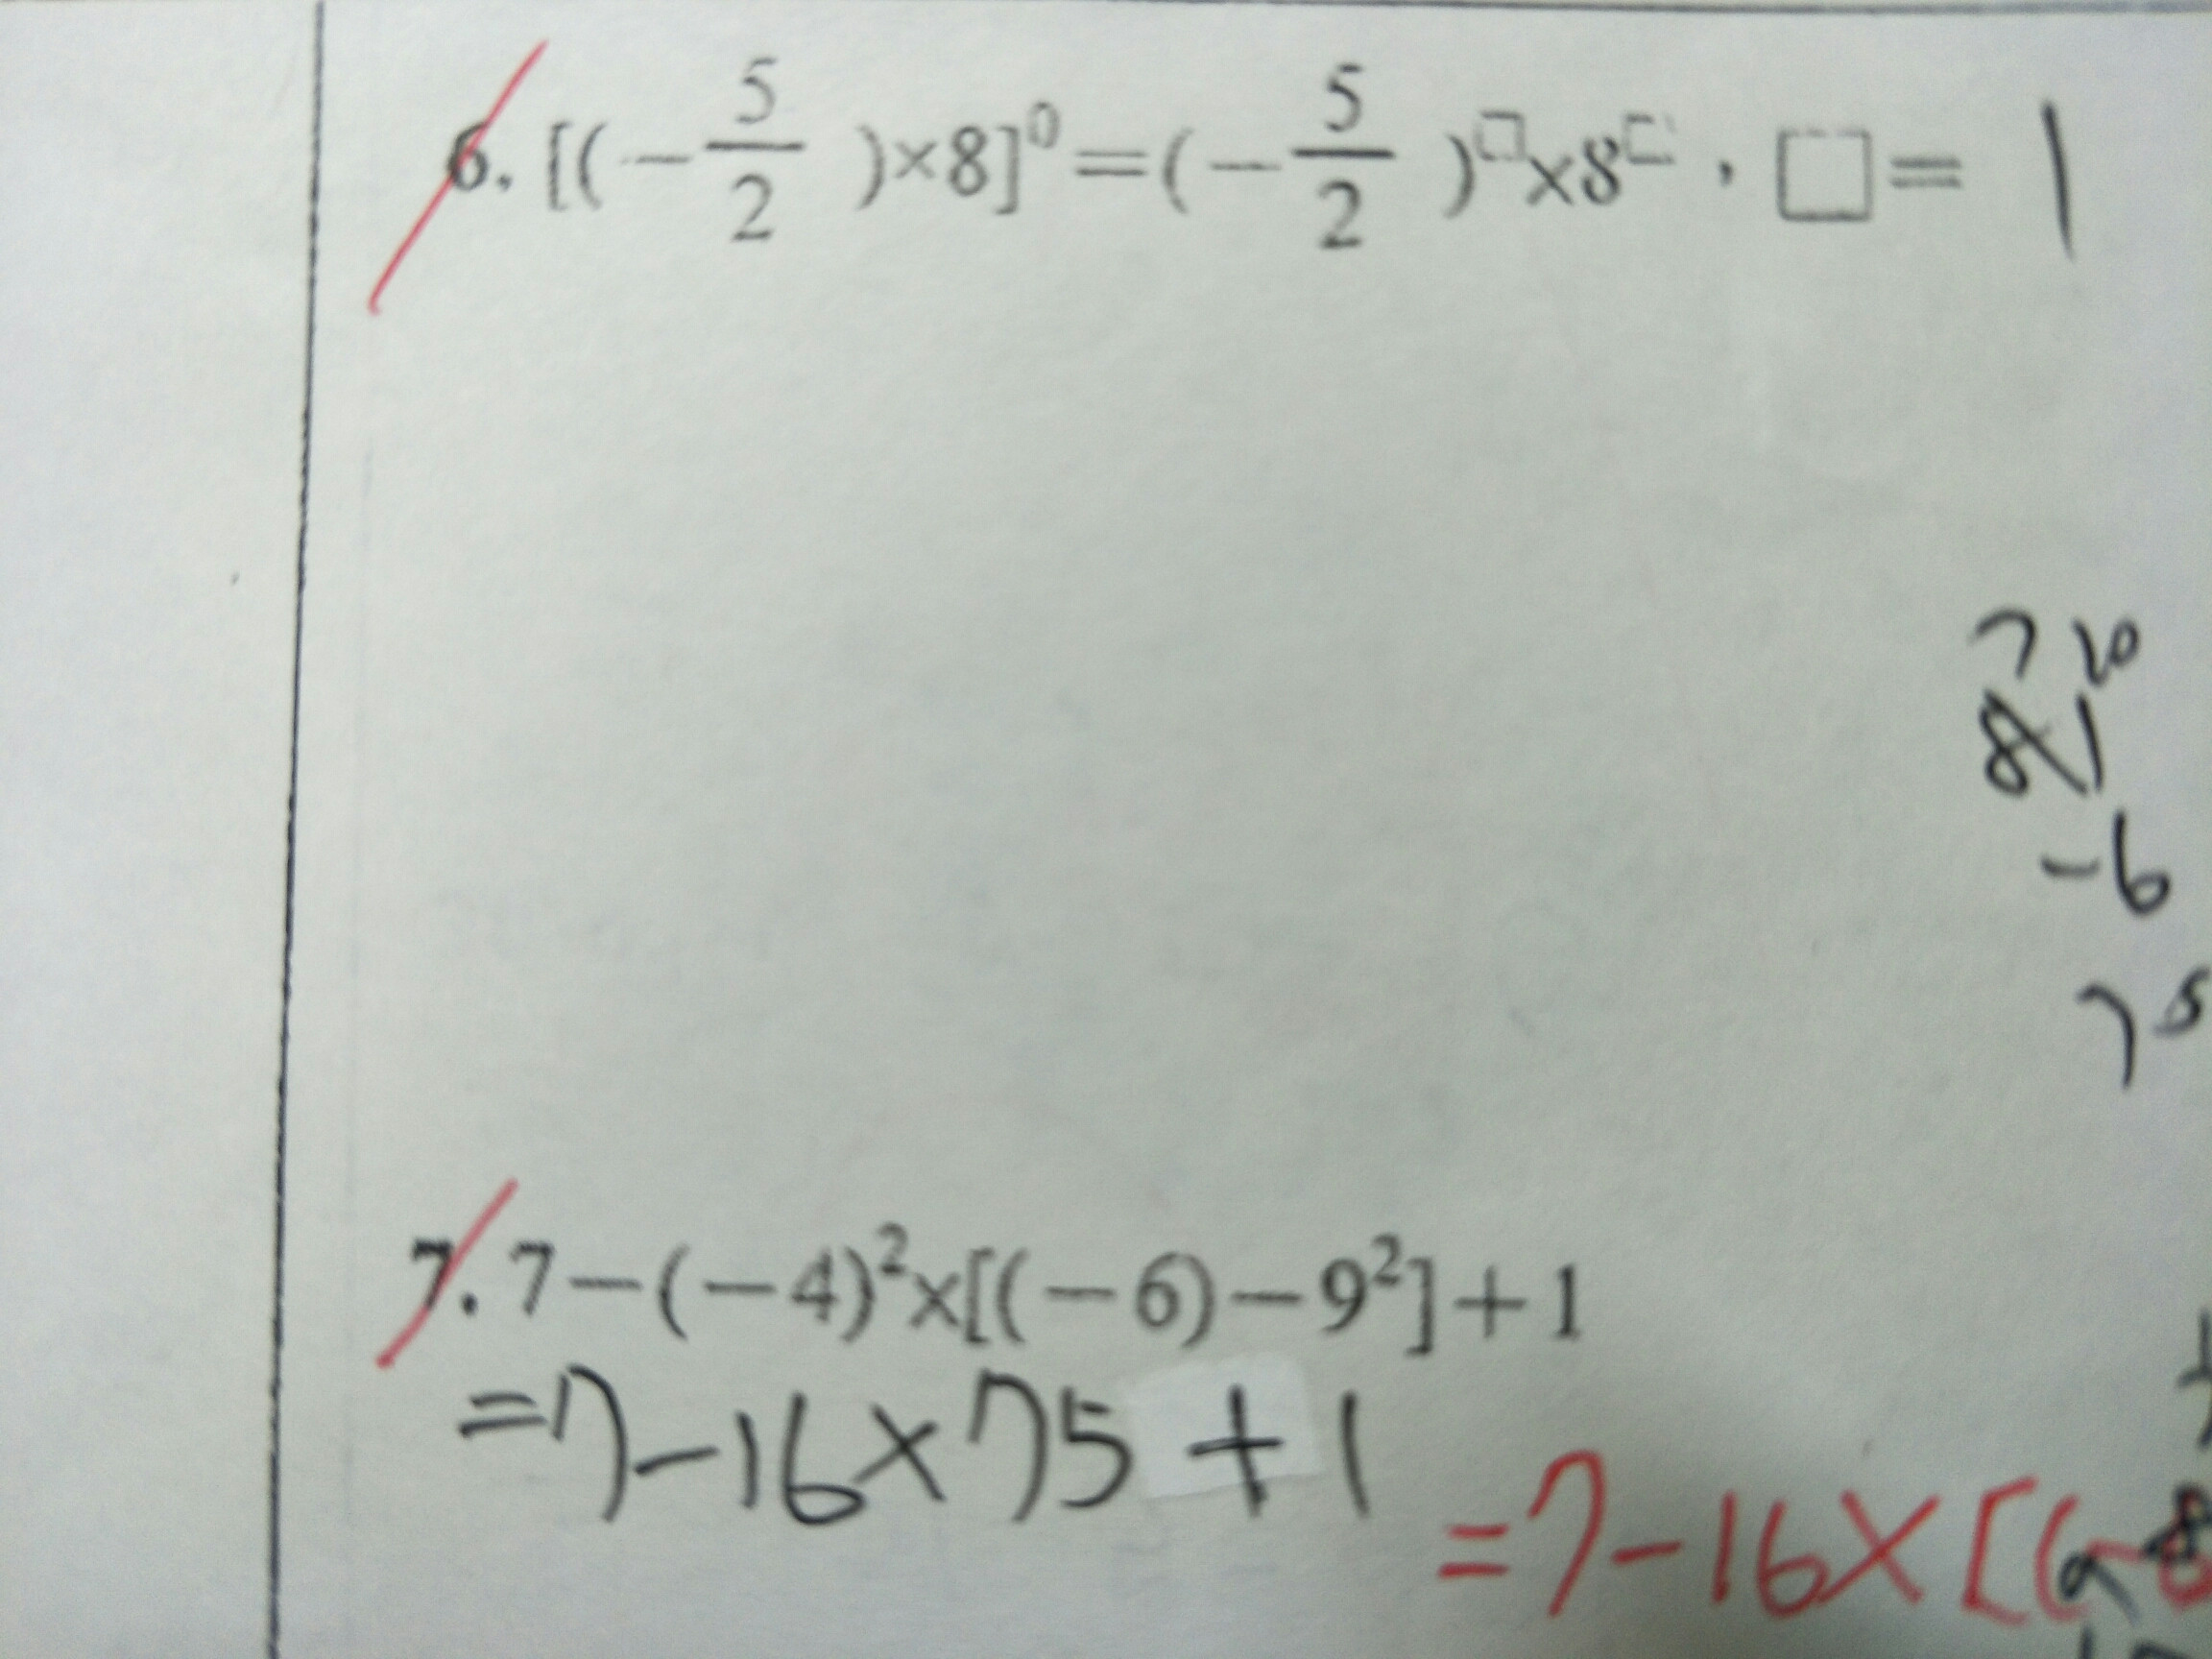 6. [(－5/2)×8]⁰＝(－5/2)□×8□，□＝ 1
7 10
81
-6
75
7. 7－(－4)²×[(－6)－9²]＋1
=7-16×75+1
=7-16×[(